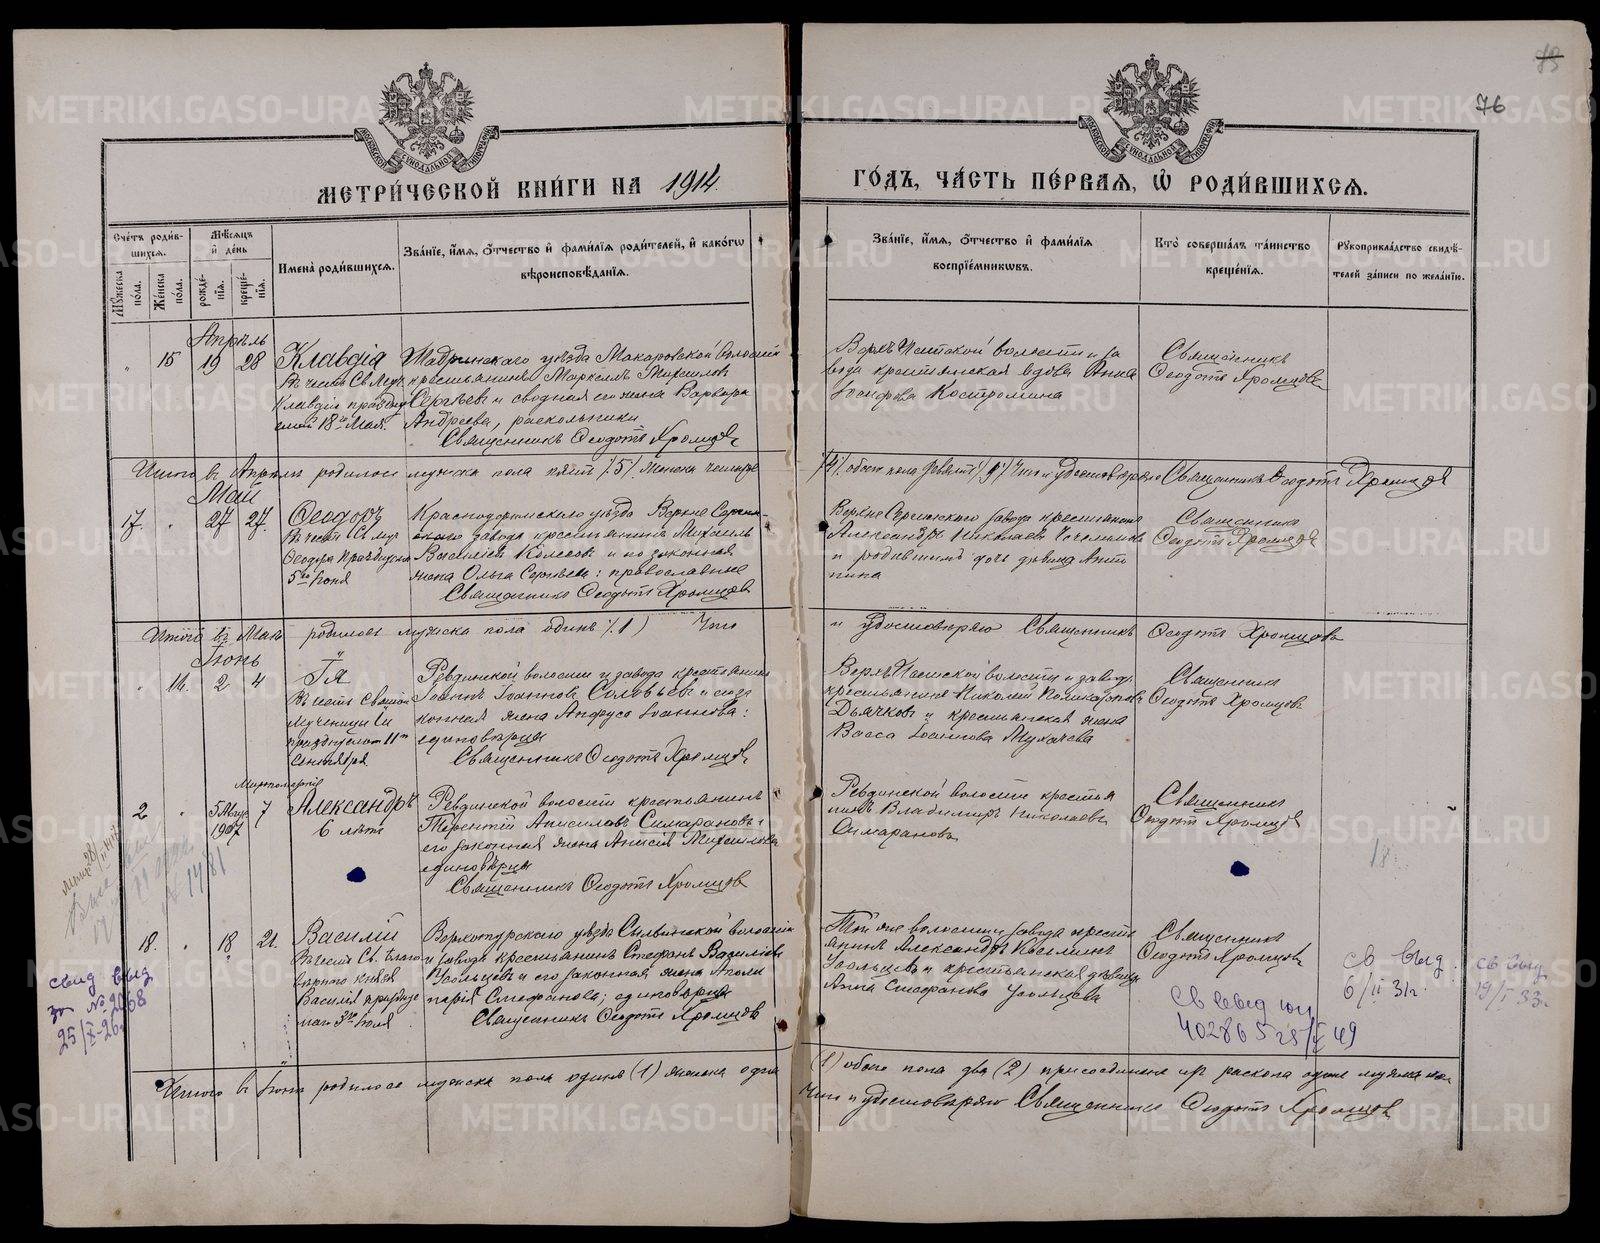 83
76
МЕТРИ́ЧЕСКОЙ КНИ́ГИ НА 1914
ГО́ДЪ, ЧА́СТЬ ПЕ́РВАЯ, Ѡ РОДИ́ВШИХСЯ.
Сче́тъ роди́в-
шихся.
Мꙋ́жеска
по́ла.
Же́нска
по́ла.
Мѣ́сяцъ
и҆ де́нь
рожде́-
нїя.
креще́-
нїя.
И҆мена̀ роди́вшихся.
Зва́нїе, и҆́мя, ѻ҆́тчество и҆ фами́лїя роди́телей, и҆ како́гѡ
вѣроисповѣ́данїя.
Зва́нїе, и҆́мя, ѻ҆́тчество и҆ фами́лїя
воспрїе́мникѡвъ.
Кто̀ соверша́лъ та́инство
креще́нїя.
Рꙋкоприкла́дство свидѣ́-
телей за́писи по жела́нїю.
Апрѣль
15 19 28 Клавдія
Въ честь Св. Муч.
Клавдіи праздну
емой 18го Мая.
Шадринскаго уѣзда Макаровской волости
крестьянинъ Маркелъ Михеилов
Сергѣевъ и сводная его жена Варвара
Андреева, раскольники
Священникъ Ѳеодотъ Хромцовъ
Верхъ Исетской волости и за
вода крестьянская вдова Анна
Іосифова Костромина
Священникъ
Ѳеодотъ Хромцовъ
Итого въ Апрѣлѣ родилось мужска пола пять /5/ женска четыре
/4/ обоего пола девять /9/ Что и удостовѣряю Священникъ Ѳеодотъ Хромцовъ
Май
17. 27 27. Ѳеодоръ
Въ честь Св. муч.
Ѳеодора празднуема
5го Іюня
Красноуфимскаго уѣзда Верхне Сергин-
скаго завода крестьянинъ Михаилъ
Василіевъ и его законная
жена Ольга Сергѣева: православные
Священникъ Ѳеодотъ Хромцовъ
Верхне Сергинскаго завода крестьянинъ
Александръ Николаевъ
и дочь дѣвица
Священникъ
Ѳеодотъ Хромцовъ
Итого въ Маѣ родилось мужска пола одинъ /1/ Что
и удостовѣряю Священникъ Ѳеодотъ Хромцовъ
Іюнь
2 4 Ія
Въ честь святой
мученицы Іи
празднуемой 11го
Сентября
Ревдинской волости и завода крестьянинъ
Іоаннъ Іоанновъ Соловьевъ и его за
конная жена Іоаннова:
единовѣрцы
Священникъ Ѳеодотъ Хромцовъ
Верхъ Исетской волости и завода
крестьянинъ Николай Поликарповъ
Дьячковъ и крестьянская жена
Васса Іоаннова Мухачева
Священникъ
Ѳеодотъ Хромцовъ
Миропомазанъ
2 5 Авгус
1907 7 Александръ
6 лѣтъ
Ревдинской волости крестьянинъ
Терентій Анисимовъ Симарановъ и
его законная жена Анисія Михаилова
единовѣрцы
Священникъ Ѳеодотъ Хромцовъ
Ревдинской волости крестья
нинъ Владиміръ Николаевъ
Симарановъ
Священникъ
Ѳеодотъ Хромцовъ
18
1481
18. 18 21. Василій
Въ честь Св. благо
вѣрнаго князя
Василія праздуе
маго 3го Іюля
Верхотурскаго уѣзда волости
и завода крестьянинъ Стефанъ Василіевъ
Усольцевъ и его законная жена Аполи
нарія Стефанова; единовѣрцы
Священникъ Ѳеодотъ Хромцовъ
Той же волости и завода кресть
янинъ Александръ
Усольцевъ и крестьянская дѣвица
Анна Стефанова Усольцева
Священникъ
Ѳеодотъ Хромцовъ
свид выд
за № 2068
25/X-26
св выд.
6/II 31г.
св выд.
19/I 33г.
св выд
402865 25/X 49
Итого въ Іюнѣ родилось мужска пола одинъ (1) женска одна
(1) обоего пола два (2) присоединенъ изъ раскола одинъ мужска пола
Что и удостовѣряю Священникъ Ѳеодотъ Хромцовъ
METRIKI.GASO-URAL.RU